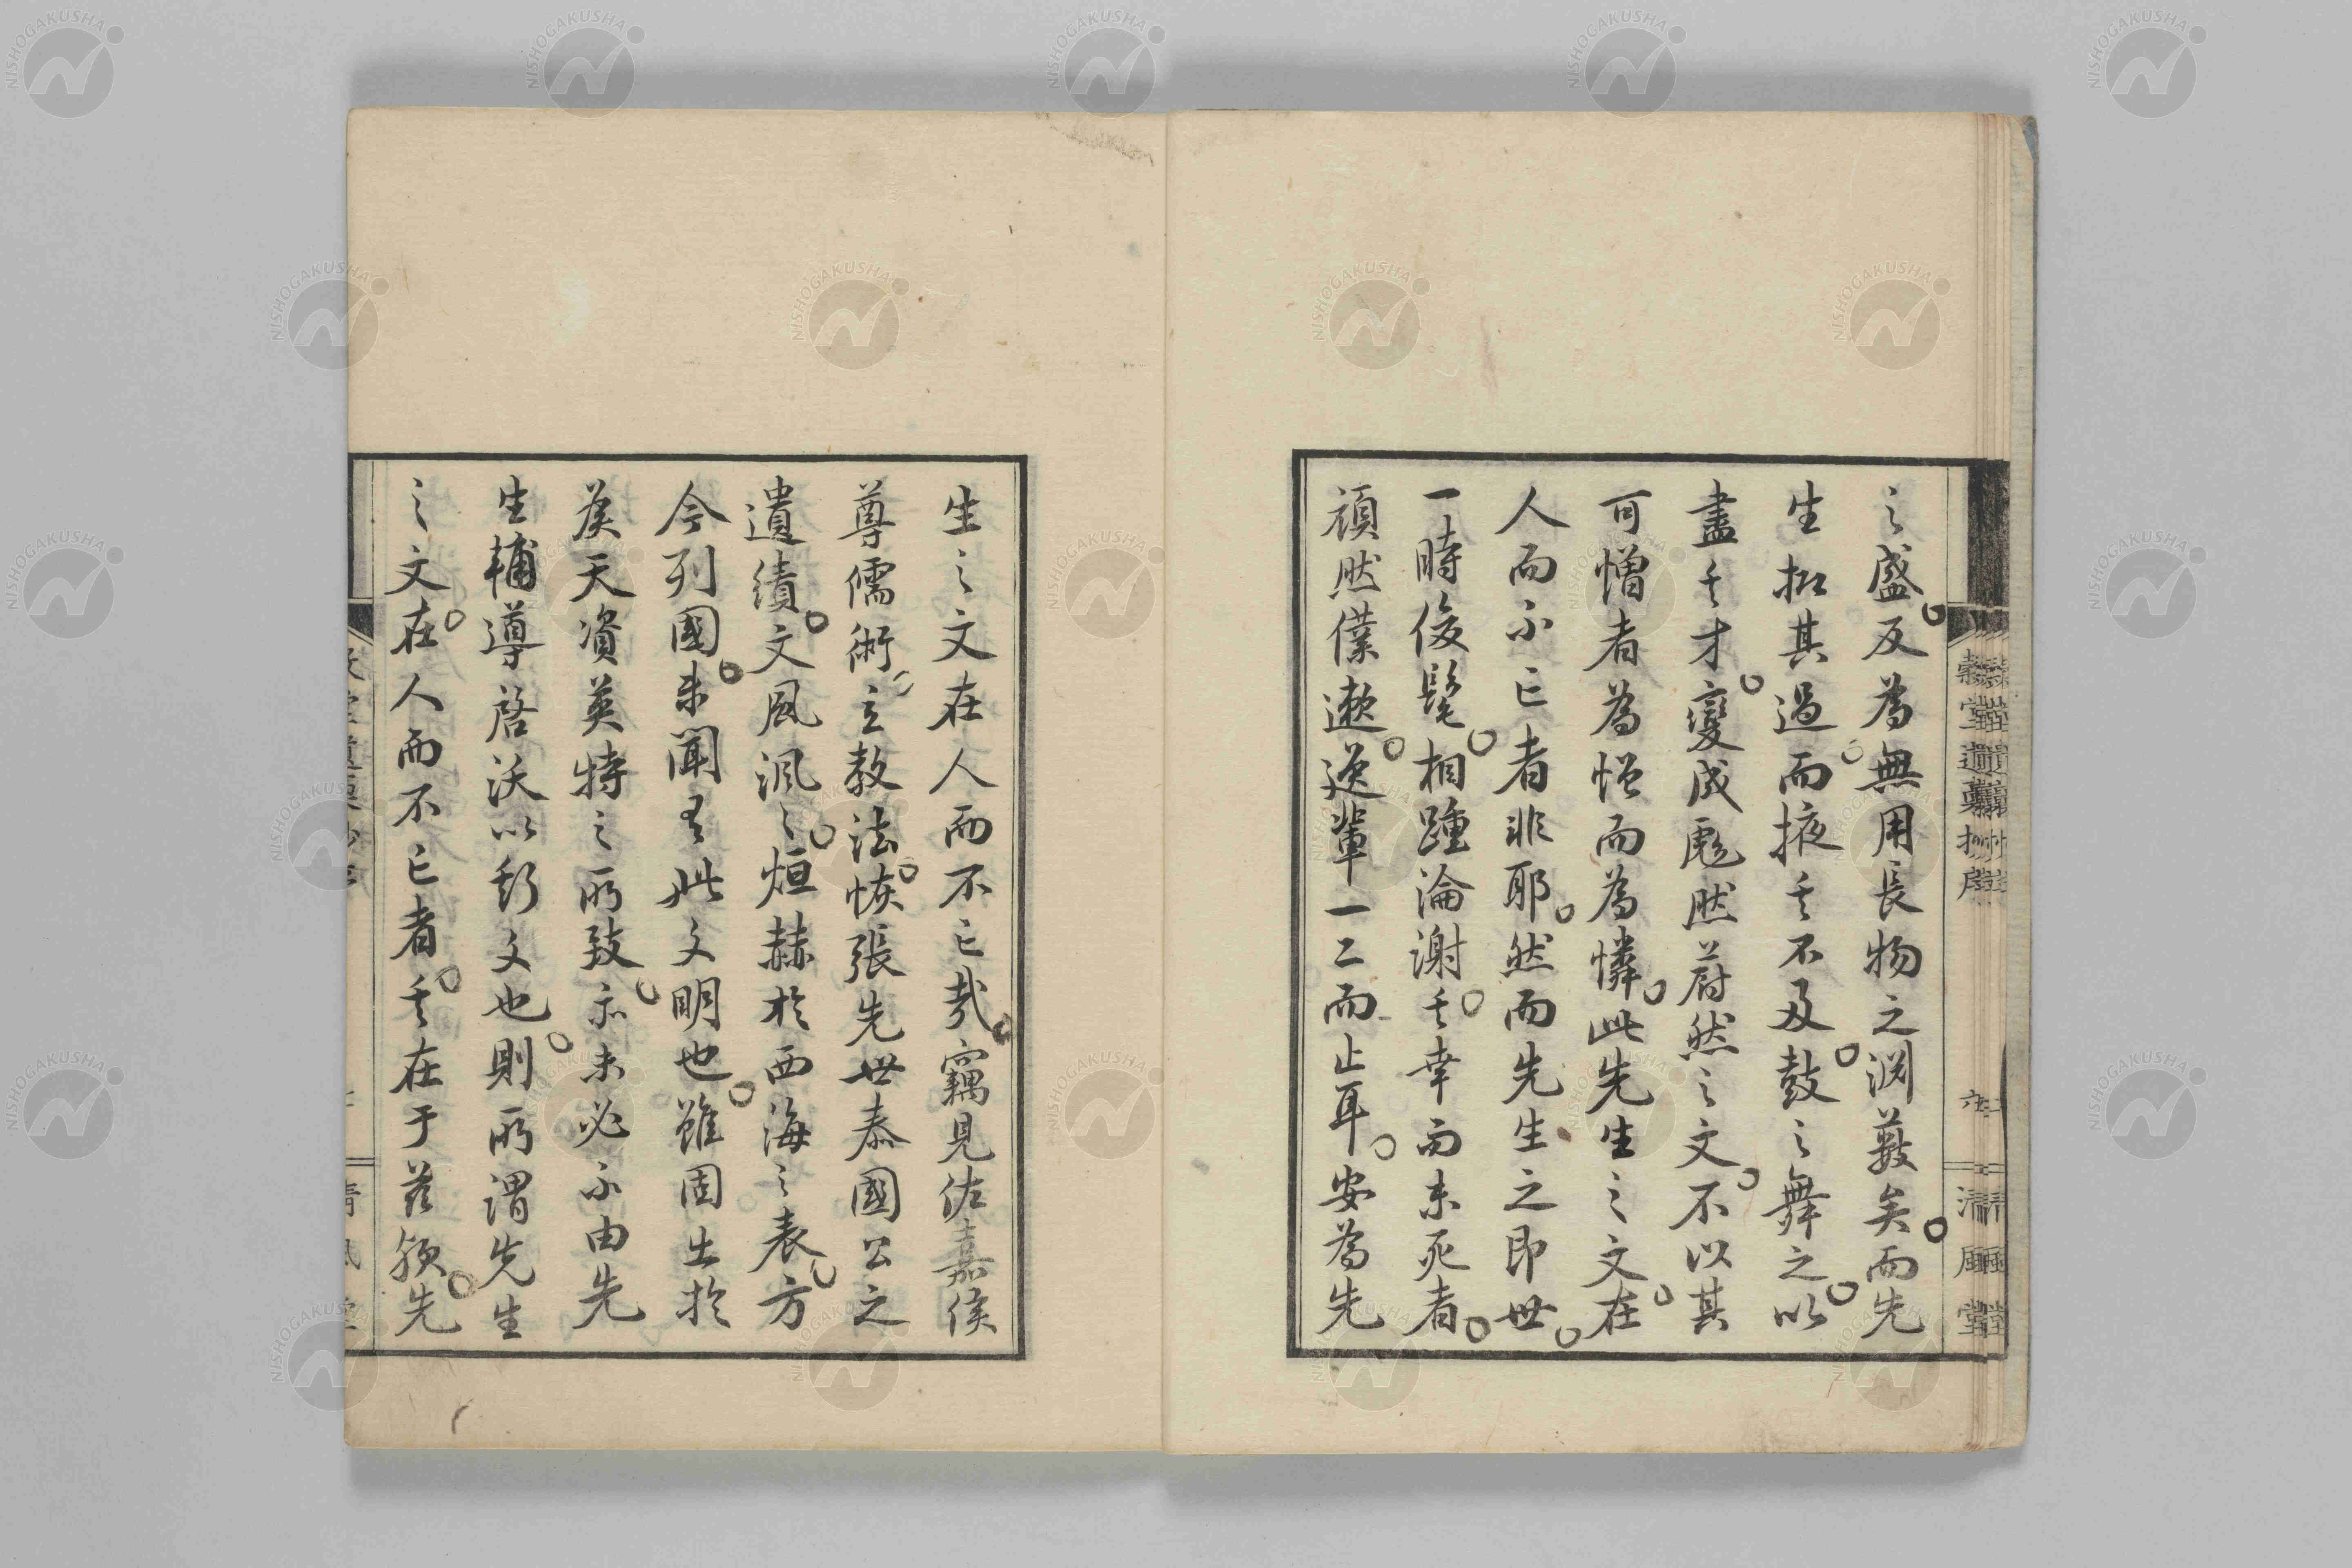 之盛反為無用長物之淵藪矣而先
生抑其過而掖其不及鼓之舞之以
盡其才變成彪然蔚然之文不以其
可憎者為憎而為憐此先生之文在
人而不已者非耶然而先生之即世
一時俊髦相踵淪謝其幸而未死者
頑然僕遬送輩一二而止耳安為先
生之文在人而不已哉竊見佐嘉侯
尊儒術立教法恢張先世泰國公之
遺績文風渢々烜赫於西海之表方
今列國未聞有此文明也雖固出於
侯天資英特之所致亦未必不由先
生輔導啓沃以彰文也則所謂先生
之文在人而不已者其在于茲歟先
穀堂遺稾抄序
六
清風堂